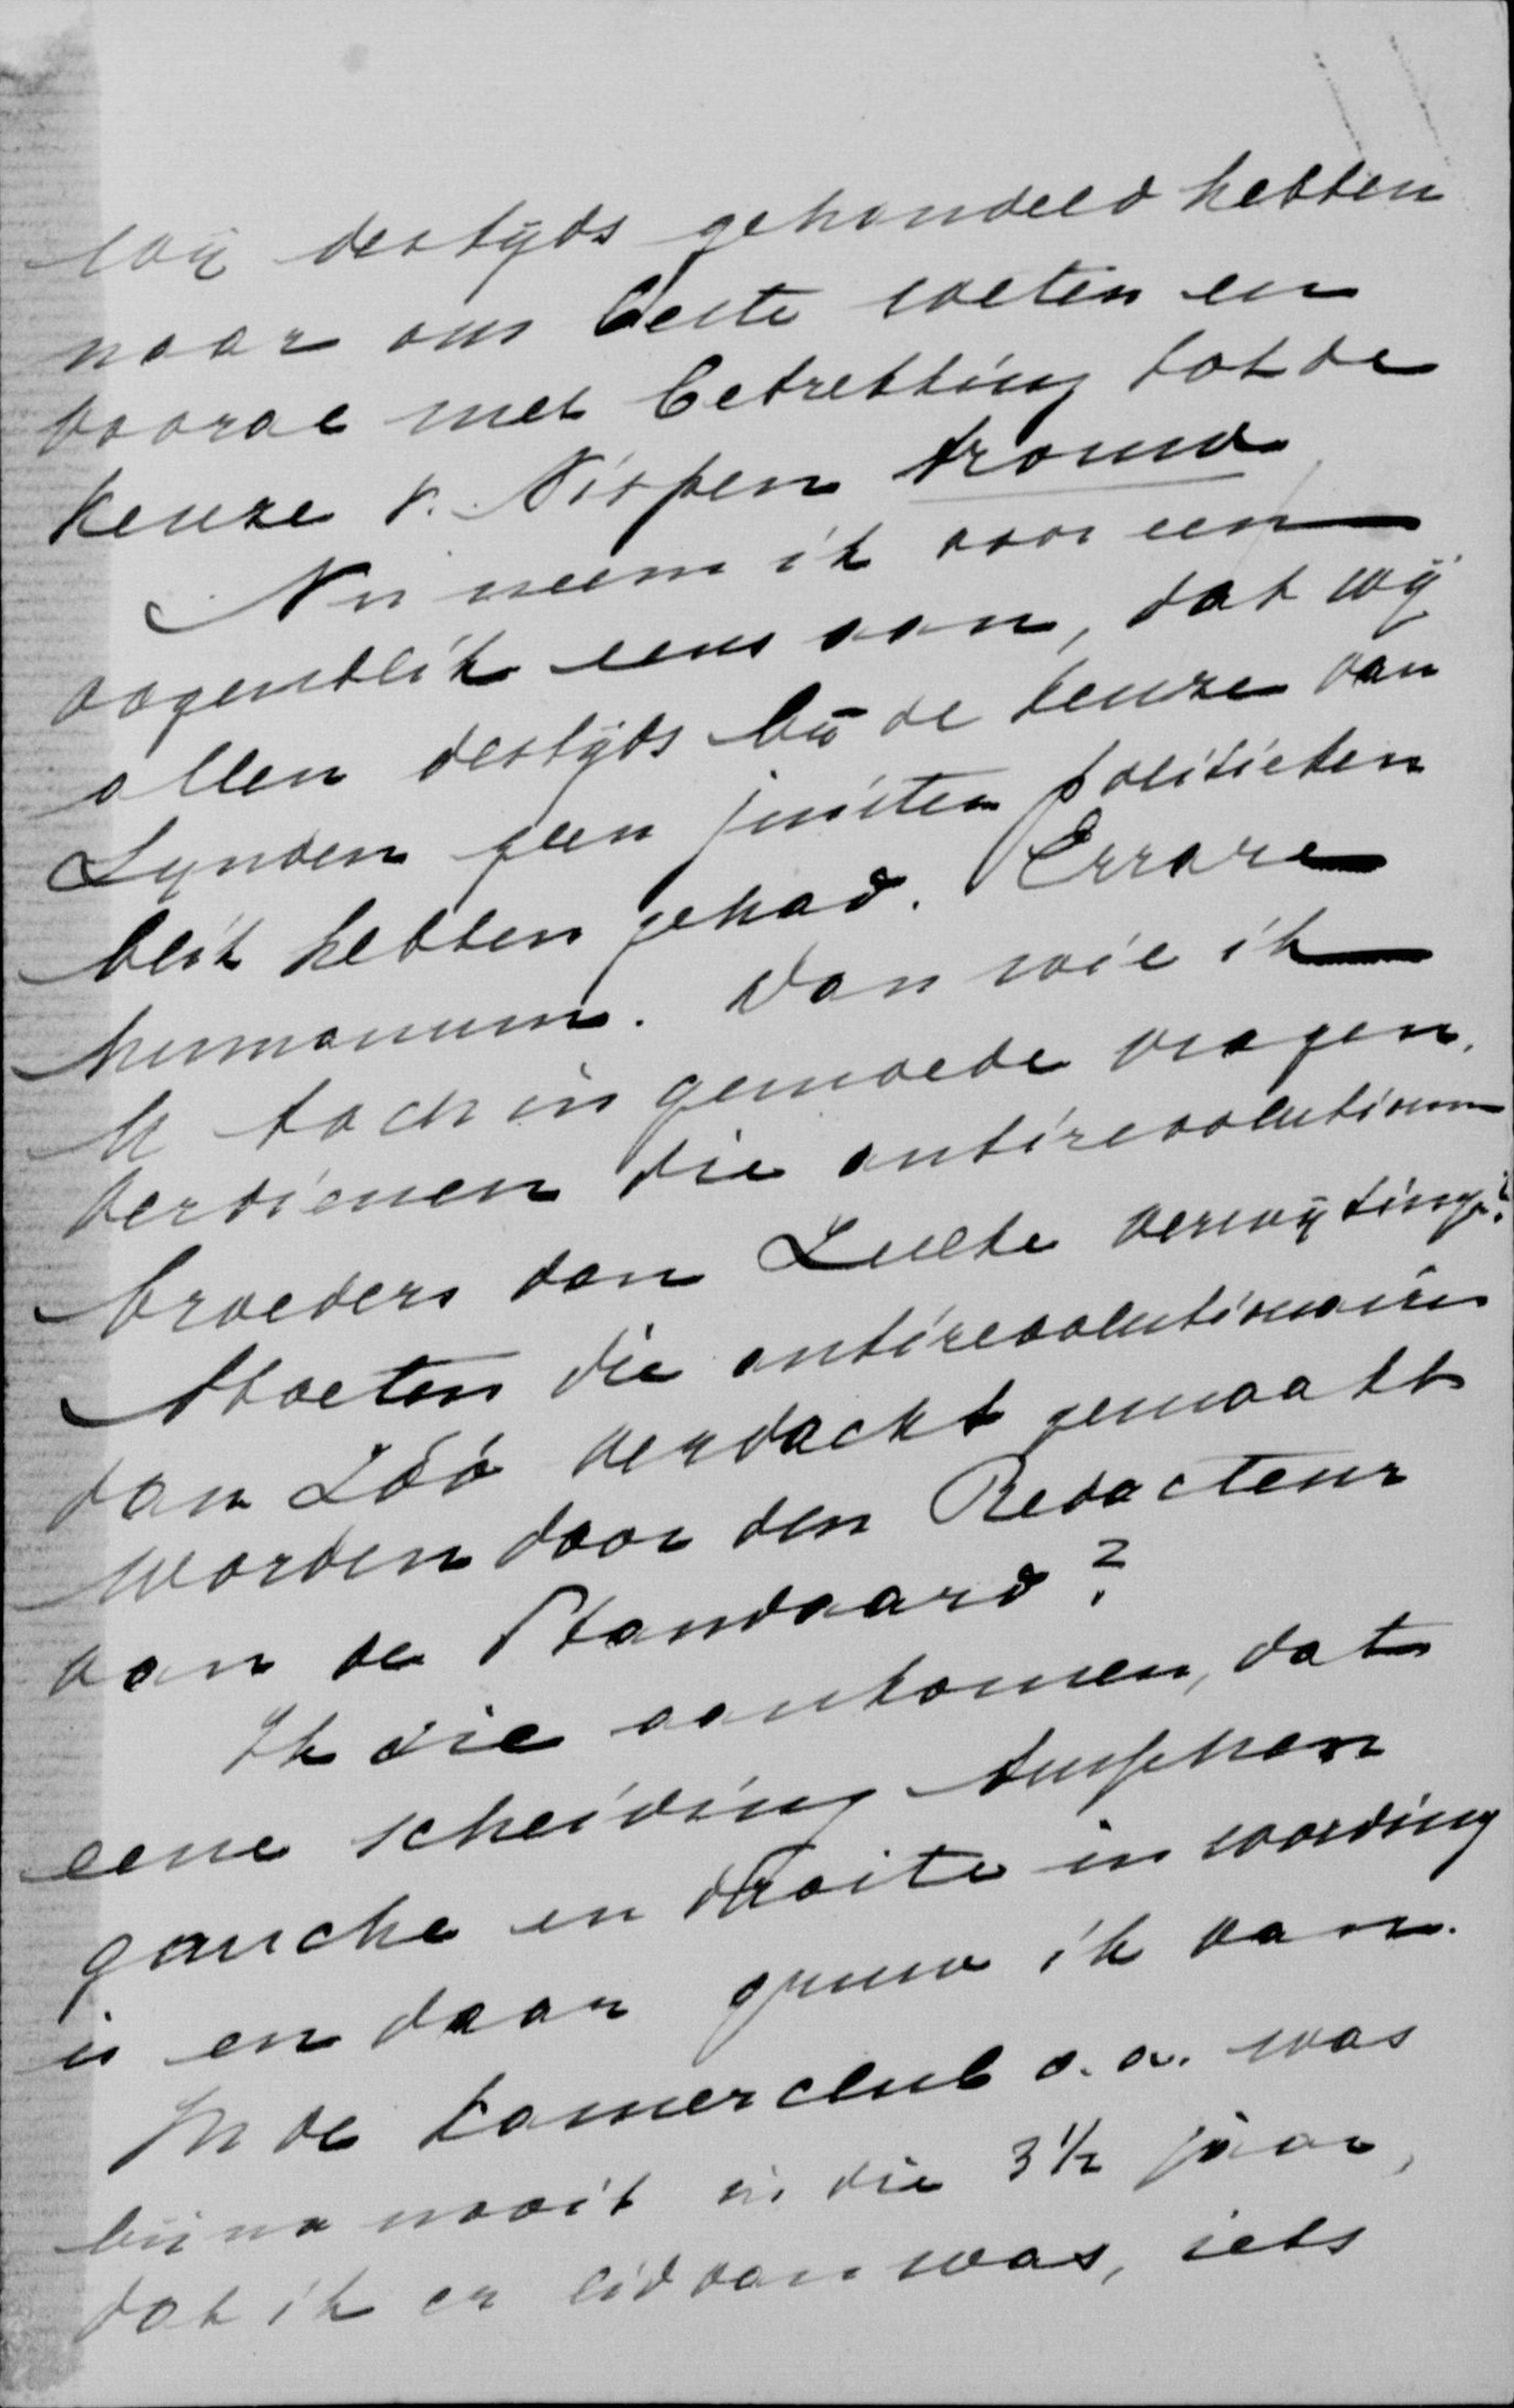 wij destijds gehandeld hebben
naar ons beste weten en
vooral met betrekking tot de
keuze v. Nispen trouw
Nu neem ik voor een
oogenblik eens aan, dat wij
allen destijds bij de keuze van
Lynden geen juisten politieken
blik hebben gehad. Errare
humanum. Dan wil ik
U toch in gemoede vragen.
verdienen die antirevolutionn
broeders dan Zulke verwijting?
Moeten die antirevolutionairen
dan Zóó verdacht gemaakt
worden door den Redacteur
van de Standaard?
Ik zie aankomen, dat
eene scheiding tusschen
gauche en droite in wording
is en daar gruw ik van.
In de kamerclub o.a. was
bijna nooit in die 3 1/2 jaar,
dat ik er lid van was, iets